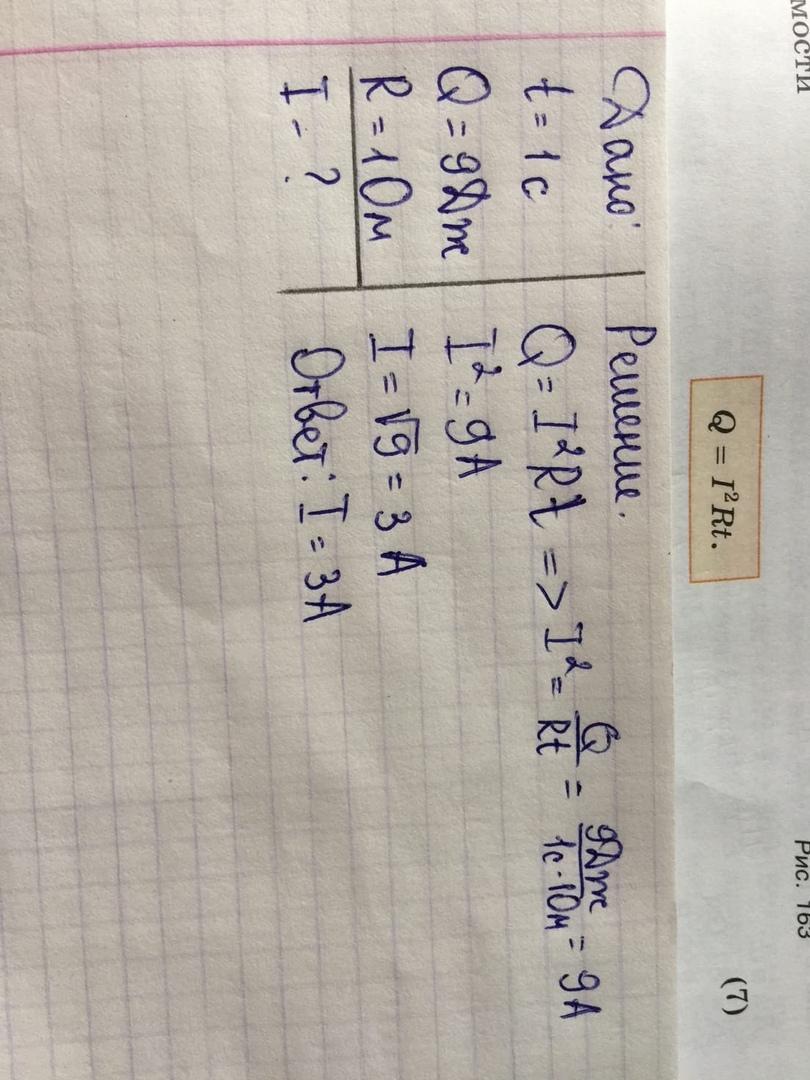 мости
Рис. 163
Q = I²Rt.
(7)
Дано:
t = 1с
Q = 9Дж
R = 1Ом
I - ?
Решение.
Q = I²Rt => I² = Q/Rt = 9Дж/1с·1Ом = 9А
I² = 9А
I = √9 = 3 А
Ответ: I = 3А